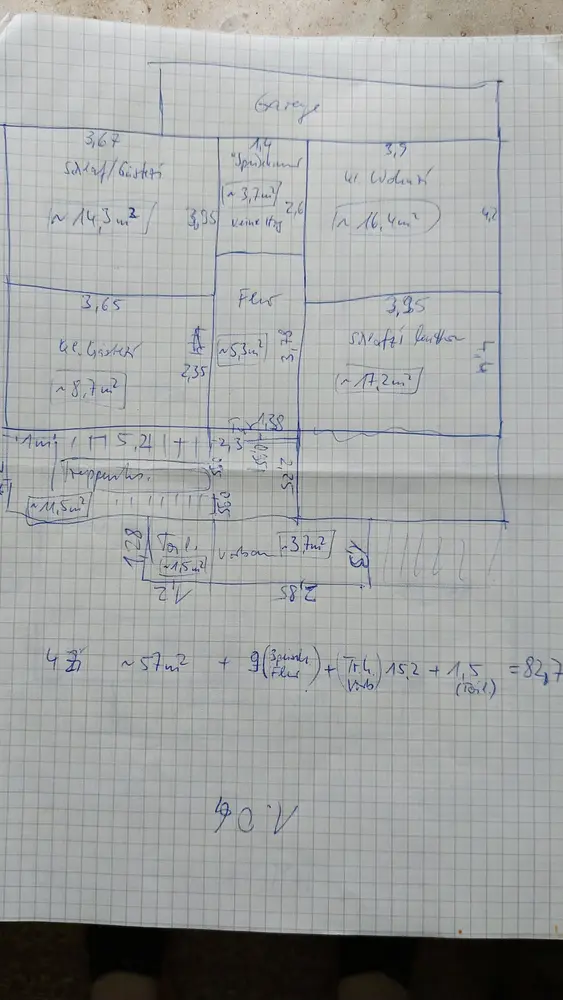 Garage
3,67
Schlaf/Gästezi
~ 14,3 m²
3,95
1,4
~ 3,7 m²
2,6
3,9
~ 16,4 m²
4,2
3,65
~ 8,7 m²
2,35
Flur
~ 5,3 m²
3,78
3,95
~ 17,2 m²
4,4
1,38
5,21
2,25
Treppenhs.
~ 11,5 m²
1,28
Toil.
~ 1,5 m²
1,2
Vorbau
~ 3,7 m²
1,3
2,85
4 Zi ~ 57 m² + 9 (Speisek. Flur) + (Trh. Vorb) 15,2 + 1,5 (Toil.) = 82,7
1. OG